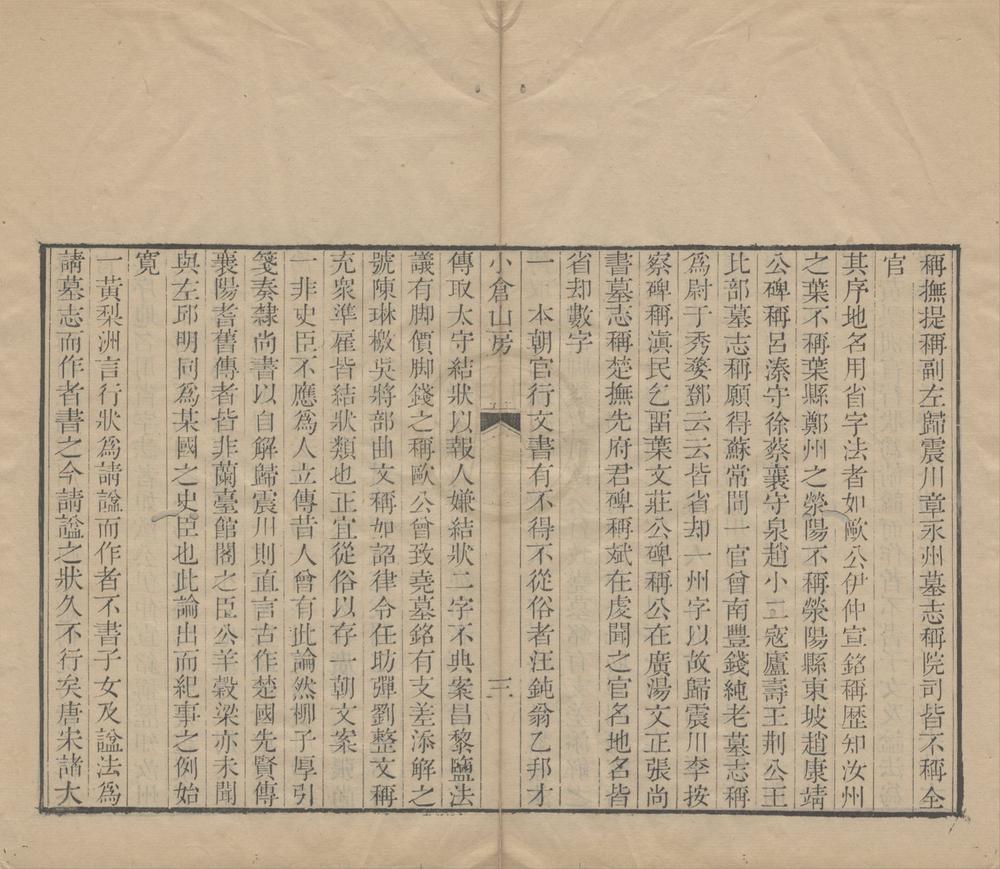 稱撫提稱副左歸震川章永州墓志稱院司皆不稱全
官
其序地名用省字法者如歐公伊仲宣銘稱歷知汝州
之葉不稱葉縣鄭州之滎陽不稱滎陽縣東坡趙康靖
公碑稱呂溱守徐蔡襄守泉趙小二寇廬壽王荆公王
比部墓志稱願得蘇常間一官曾南豐錢純老墓志稱
爲尉于秀婺鄧云云皆省却一州字以故歸震川李按
察碑稱滇民乞畱葉文莊公碑稱公在廣湯文正張尚
書墓志稱楚撫先府君碑稱斌在虔聞之官名地名皆
省却數字
一　本朝官行文書有不得不從俗者汪鈍翁乙邦才
小倉山房
三
傳取太守結狀以報人嫌結狀二字不典案昌黎鹽法
議有脚價脚錢之稱歐公曾致堯墓銘有支差添解之
號陳琳檄吳將部曲文稱如詔律令任昉彈劉整文稱
充衆準雇皆結狀類也正宜從俗以存一朝文案
一非史臣不應爲人立傳昔人曾有此論然柳子厚引
箋奏隸尚書以自解歸震川則直言古作楚國先賢傳
襄陽耆舊傳者皆非蘭臺館閣之臣公羊穀梁亦未聞
與左邱明同爲某國之史臣也此論出而紀事之例始
寬
一黃梨洲言行狀爲請諡而作者不書子女及諡法爲
請墓志而作者書之今請諡之狀久不行矣唐宋諸大